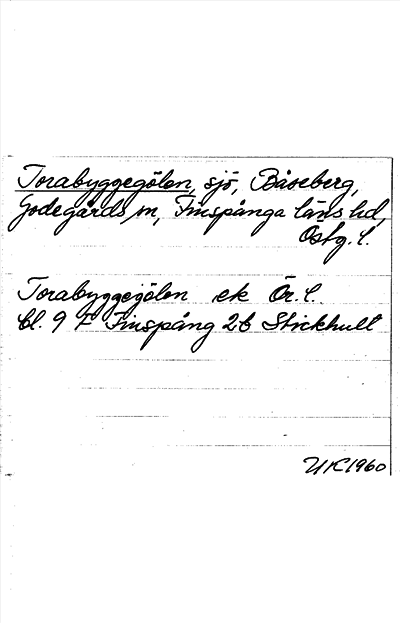 Torabyggegölen, sjö, Båseberg,
Godegårds sn, Finspånga läns hd,
Östg. l.
Torabyggegölen ek Ör. l.
bl. 9 F Finspång 2b Stickhult
1960